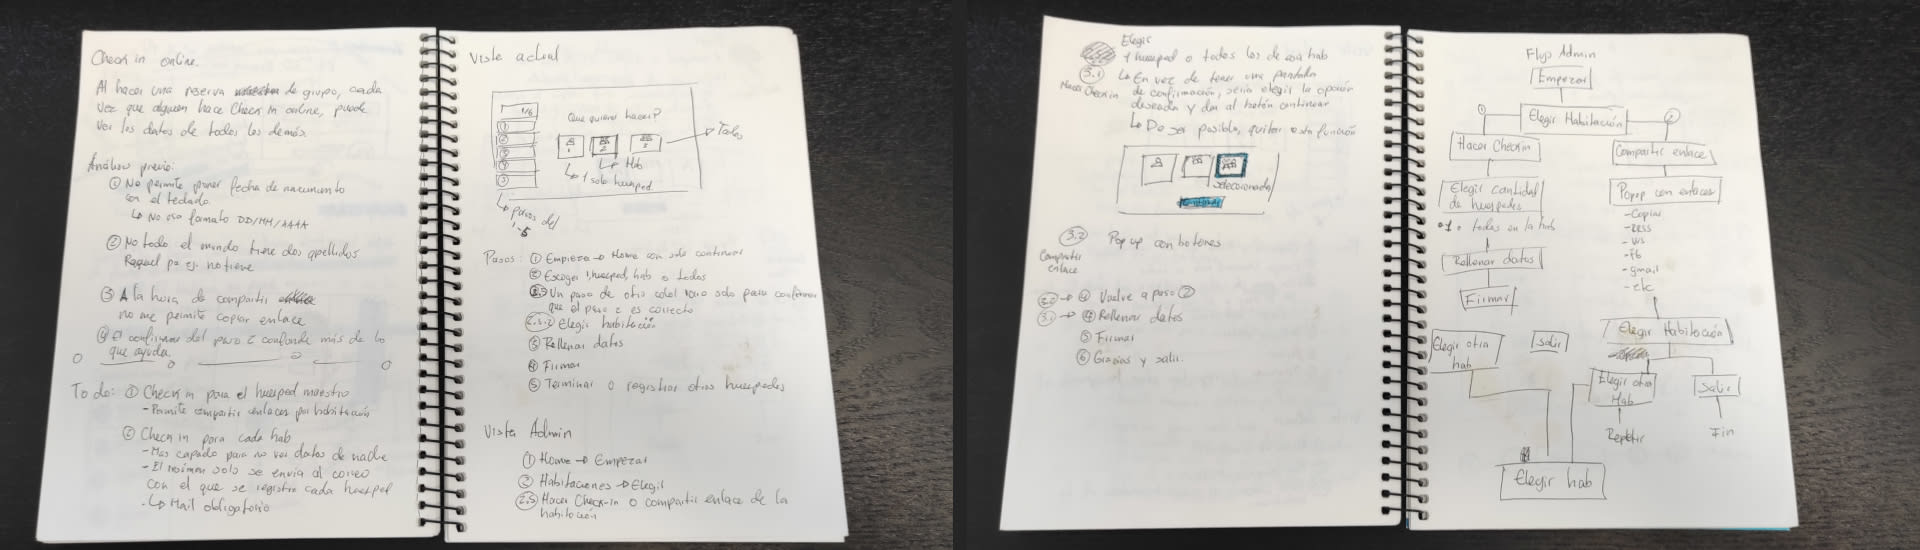 Check in online.
Al hacer una reserva de grupo, cada
vez que alguien hace Check in online, puede
ver los datos de todos los demás.
Análisis previo:
① No permite poner fecha de nacimiento
con el teclado.
↳ No uso formato DD/MM/AAAA
② No todo el mundo tiene dos apellidos
Raquel por ej. no tiene
③ A la hora de compartir
no me permite copiar enlace
④ El confirmar del paso 2 confunde más de lo
que ayuda.
To do: ① Check in para el huesped maestro
- Permite compartir enlaces por habitación
② Check in para cada hab
- Mas capado para no ver datos de nadie
- El solo se envia al correo
con el que se registra cada huesped
↳ Mail obligatorio
Vista actual
1/6
Que quieres hacer?
Todos
1
2
3
Hab
1 solo huesped.
pasos del
1-5
Pasos: ① Empieza → Home con solo continuar
② Escoger 1 huesped, hab o todos
2.5 Un paso de otro color solo para confirmar
que el paso 2 es correcto
2.5.2 Elegir habitación
③ Rellenar datos
④ Firmar
⑤ Terminar o registrar otros huespedes
Vista Admin
① Home → Empezar
② Habitaciones → Elegir
2.5 Hacer Check-in o compartir enlace de la
habitación
Elegir
1 huesped o todos los de esa hab
3.1
Hacer Check in
↳ En vez de tener una pantalla
de confirmación, sería elegir la opción
deseada y dar al botón continuar
↳ De ser posible, quitar esta función
seleccionada
continuar
3.2
Compartir
enlace
Pop up con botones
3.2 → ④ Vuelve a paso ②
3.1 → ④ Rellenar datos
⑤ Firmar
⑥ Gracias y salir.
Flujo Admin
Empezar
① Elegir Habitación ②
Hacer Checkin
Compartir enlace
Elegir cantidad
de huespedes
1 o todos en la hab
Popup con enlaces
- Copiar
- RRSS
- WS
- Fb
- gmail
- etc
Rellenar datos
Firmar
Elegir Habitación
Elegir otra
hab
Salir
Elegir otra
Hab
Salir
Repetir
Fin
Elegir hab